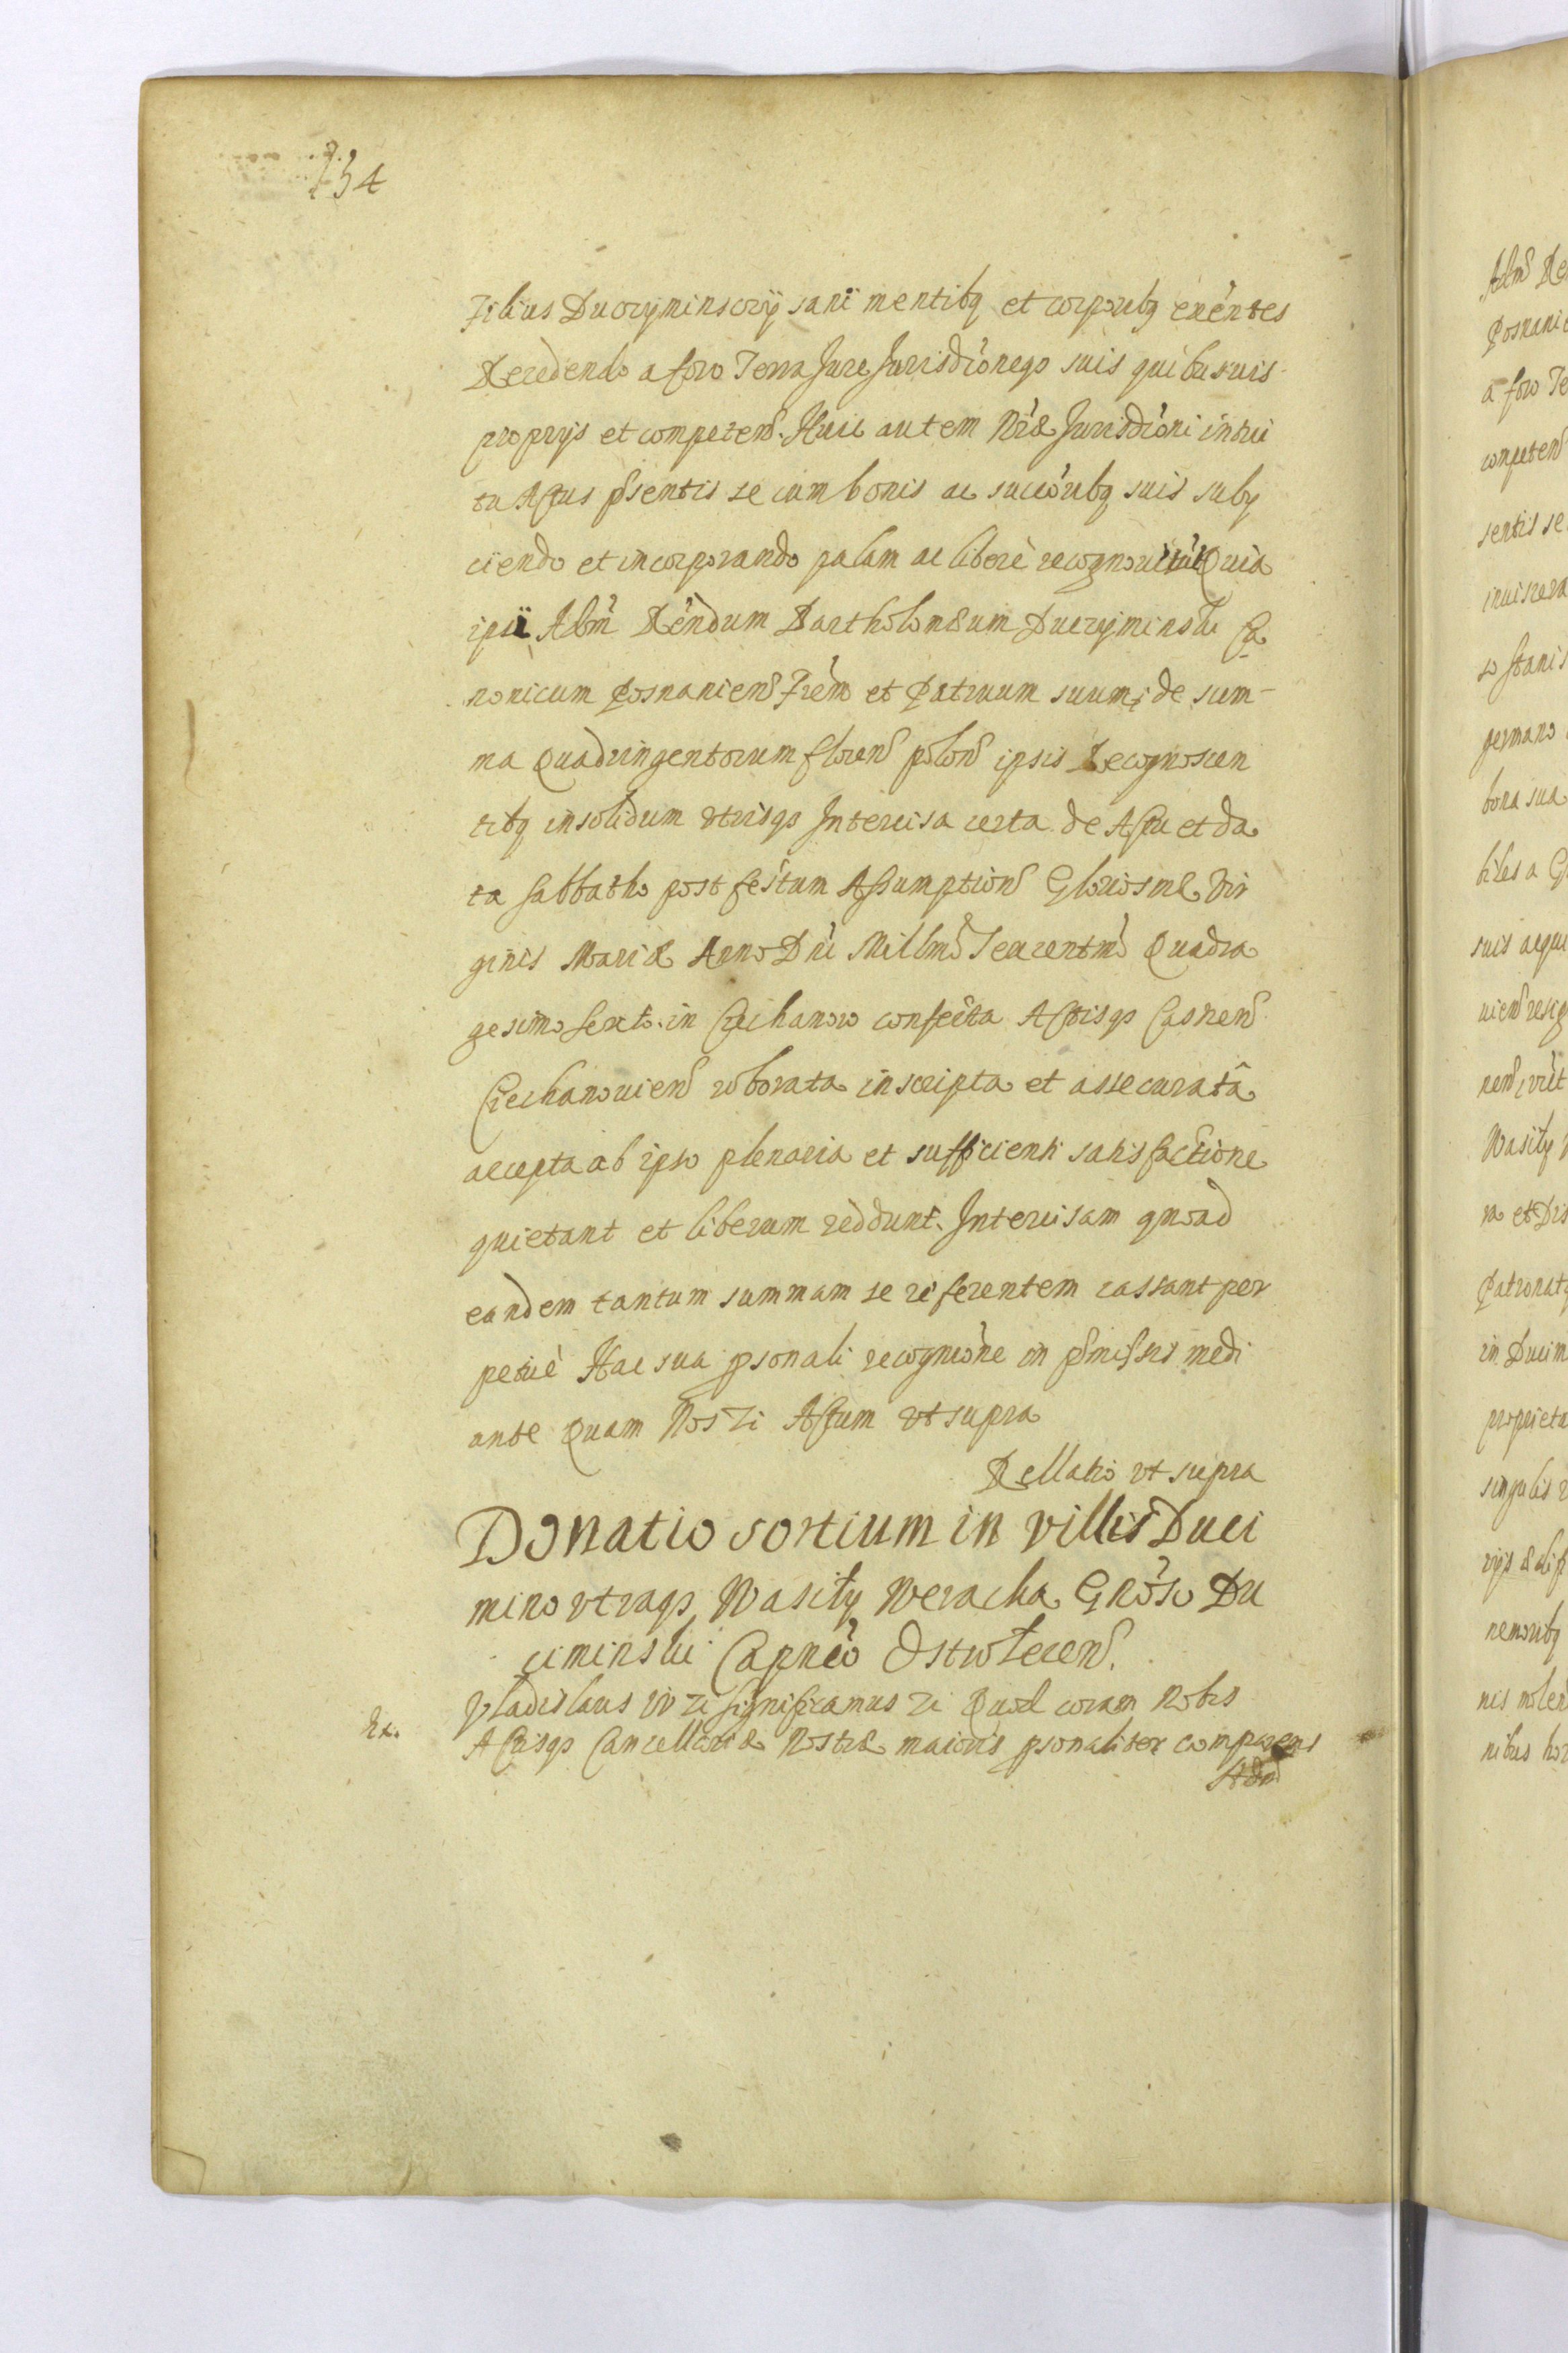 254
Filius Duczyminscӳ sani mentibq et corporibq exēntes
Recedendo a foro Terra Jure Jurisdiōneqs suis quibusuis
proprijs et competen. Huic autem Nrӕ Jurisdiōni intui
tu Actus pſentis se cum bonis ac succōribq suis subij
ciendo et incorporando palam ac liberè recognouerūt Quia
ipsi Adm̃ R̃ndum Bartholomӕum Duczyminski Ca
nonicum Posnanien Frēm et Patruum suum, de sum-
ma Quadringentorum floren polon ipsis Recognoscen
tibq insolidum vtrisqs Intercisa certa de Actu et da
ta Sabbatho post festum Assumption Gloriosmӕ Vir
ginis Mariӕ Anno Dni Millmo Sexcentmo Quadra
gesimo sexto in Ciechanow confecta Actisqs Casrens
Ciechanouien roborata inscripta et assecurata
accepta ab ipso plenaria et sufficienti satisfactione
quietant et liberum reddunt. Intercisam quoad
eandem tantum summam se referentem cassant per
petuè Hac sua psonali recogniōne in pmissis medi
ante Quam Nos Zi Actum vt supra
Rellatio vt supra
Donatio sortium in villis Duci
mino vtraqs, Wasiły Weracha Gnōso Du
ciminski Capnēo Ostrołecen.
Vladislaus IV Zi significamus Zi Quod coram Nobis
Ex.
Actisqs Cancellariӕ Nostrӕ maioris psonaliter comparens
Adm
Adm Re
Posnanie
a foro Te
competen
sentis se
so Stanis
germano
bona sua
biles a G
suis ac
Wasiły
na et
Patronatq
in Ducim
proprieta
singulis
nemoribq
nis molen
nibus hor